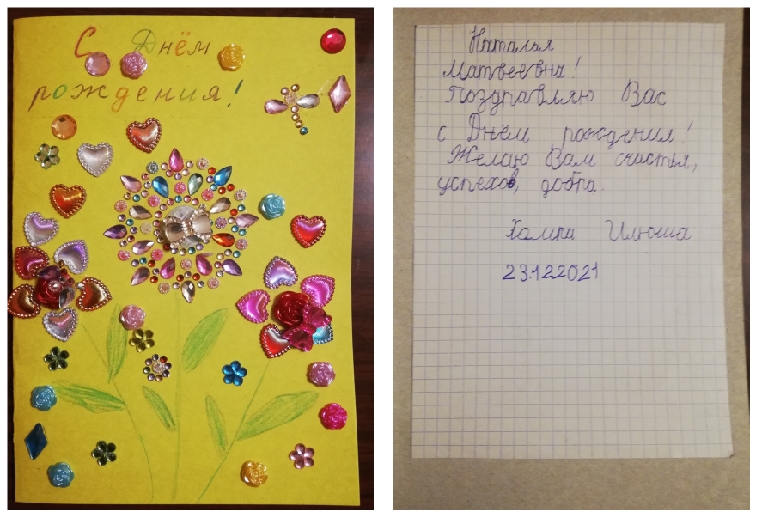 С Днём
рождения!
Наталья
Матвеевна!
Поздравляю Вас
с Днём рождения!
Желаю Вам счастья,
успехов, добра.
Илюша
23.12.2021